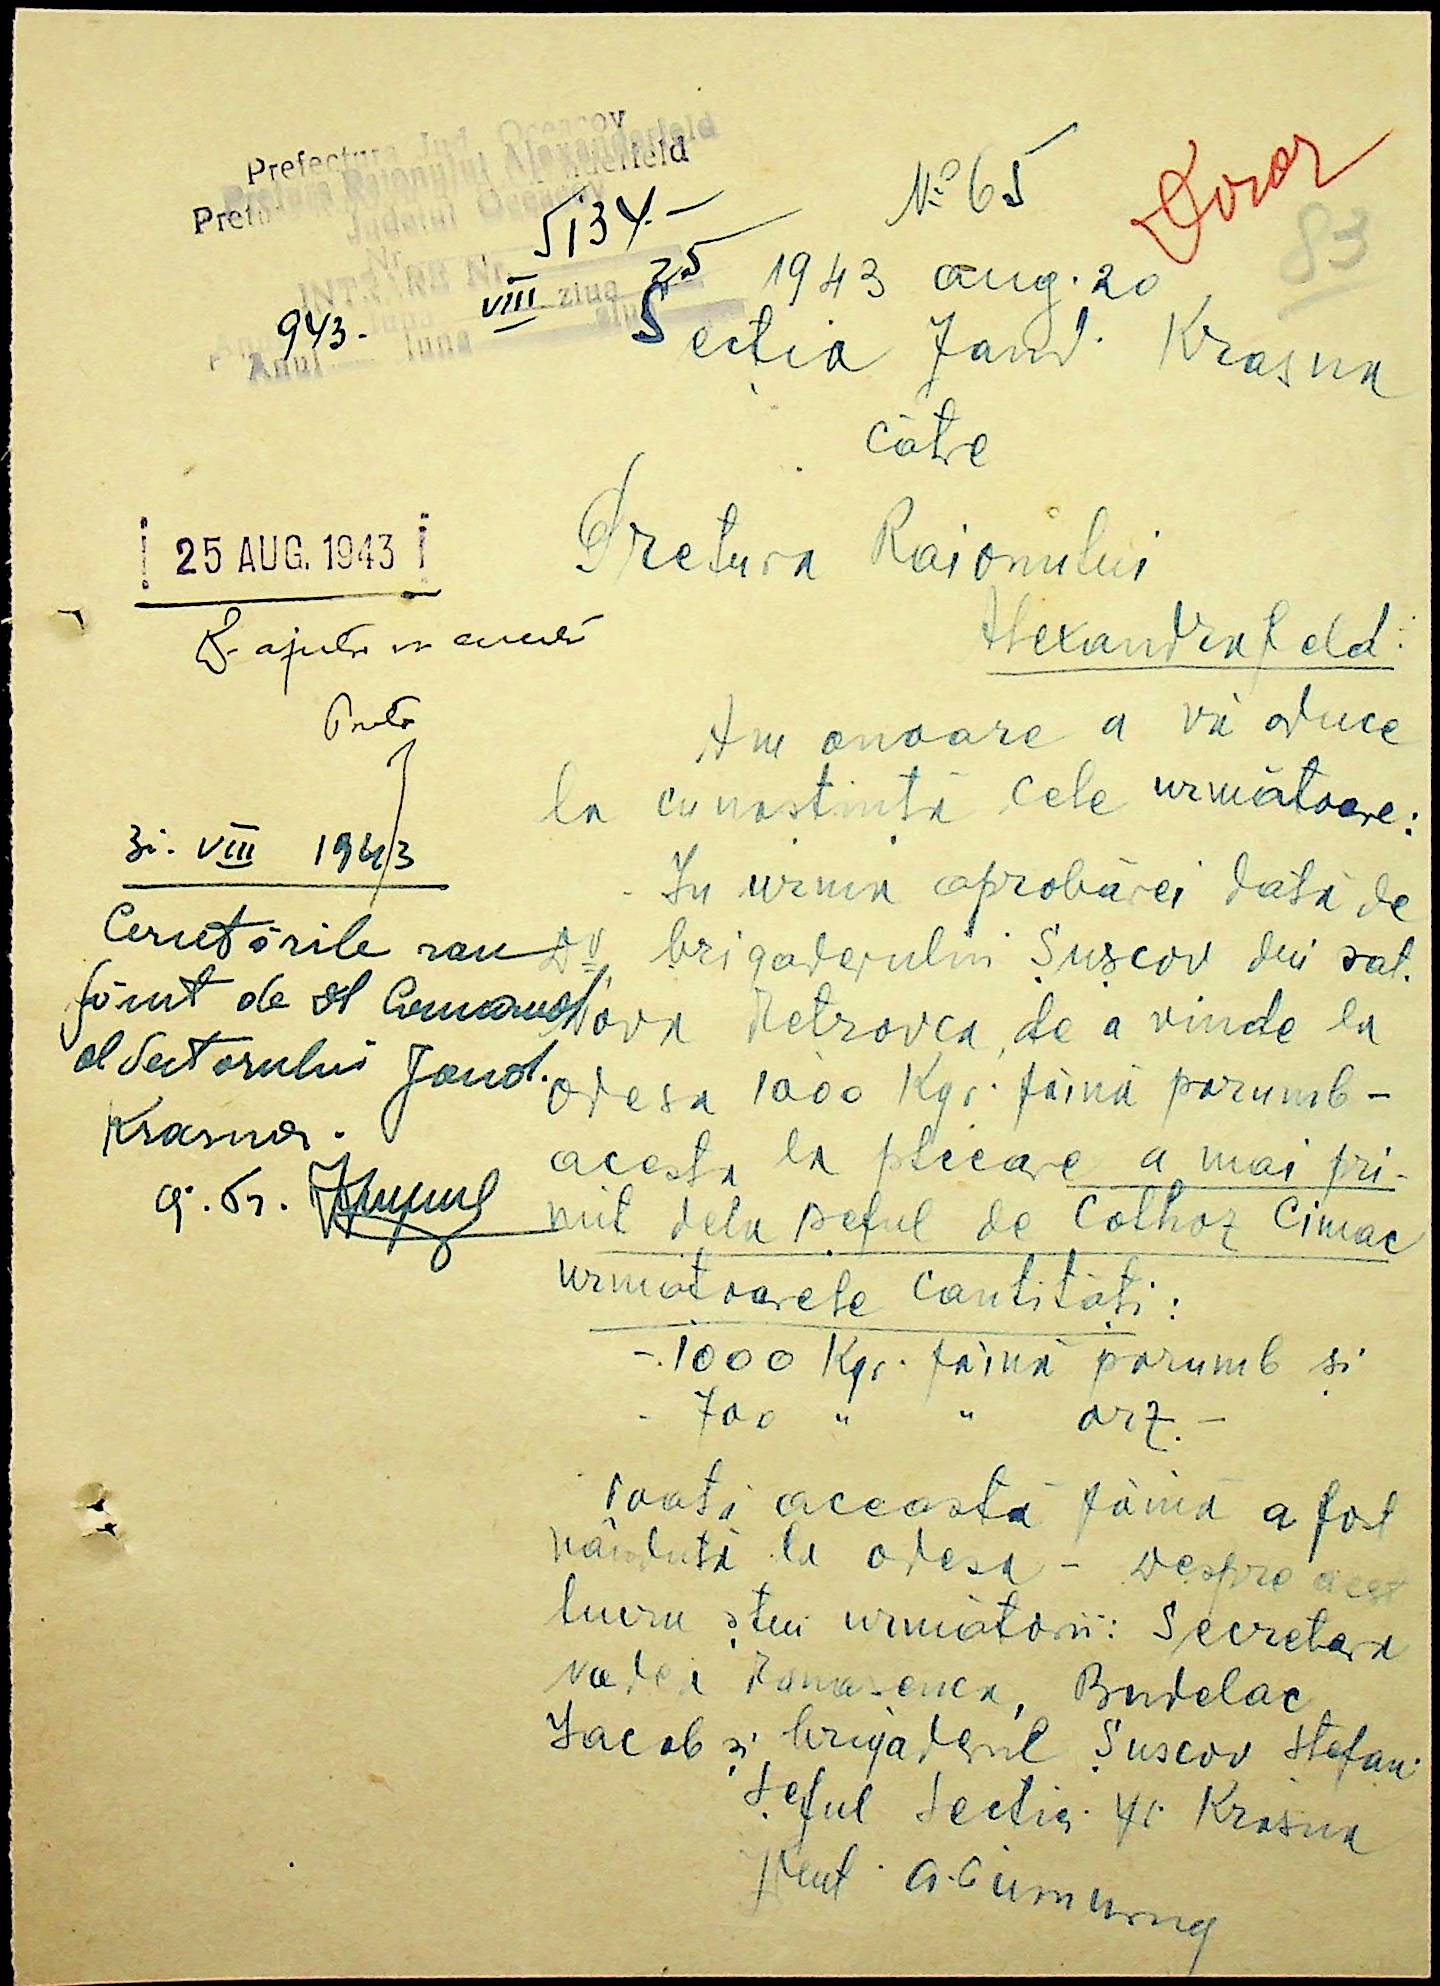 Prefectura Jud. Oceacov
Pretura Raionului Alexanderfeld
Judetul Oceacov
INTRARE Nr. 5134.-
943. VIII ziua 25
Anul luna
№ 65
Doroz
83
1943 aug. 20
Secția Jand. Krasna
către
Pretura Raionului
Alexandrafeld.
25 AUG. 1943
Am onoare a vă aduce
la cunoștință cele următoare:
- In urma aprobărei dată de
Dv. brigaderului Șușcov din sat.
Nova Petrovca, de a vinde la
Odesa 1000 Kgr. făină porumb -
acesta la plecare a mai pri-
mit dela șeful de Colhoz Cimac
următoarele cantități:
-. 1000 Kgr. făină porumb și
- 700 " " orz. -
Toată această făină a fost
vândută la Odesa - Despre acest
lucru știu următorii: Secretara
Nadea Tamasenca, Budelac
Iacob și brigaderul Șuscov Ștefan.
Șeful Secției Jd. Krasna
31. VIII 1943
Cercetările sau
făcut de dl Comandt
al Sectorului Jand.
Krasna.